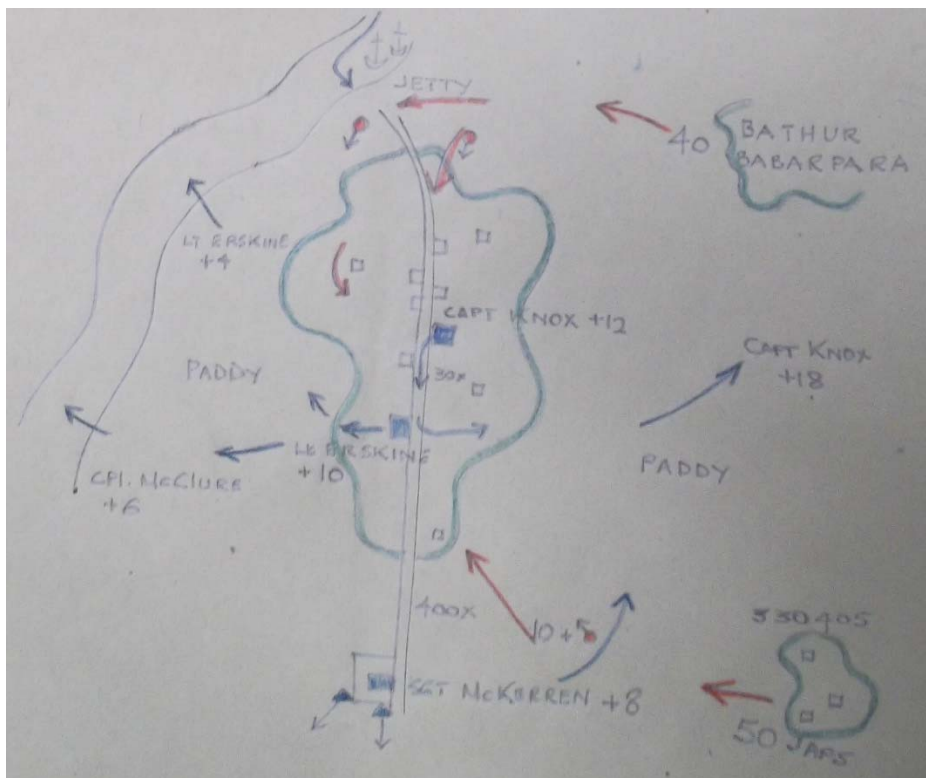 JETTY
40
BATHUR
BABARPARA
LT ERSKINE
+4
CAPT KNOX +12
30x
CAPT KNOX
+18
PADDY
LT ERSKINE
+10
PADDY
CPl. McCLURE
+6
400x
10 +
330405
SGT McKERREN +8
50 JAPS